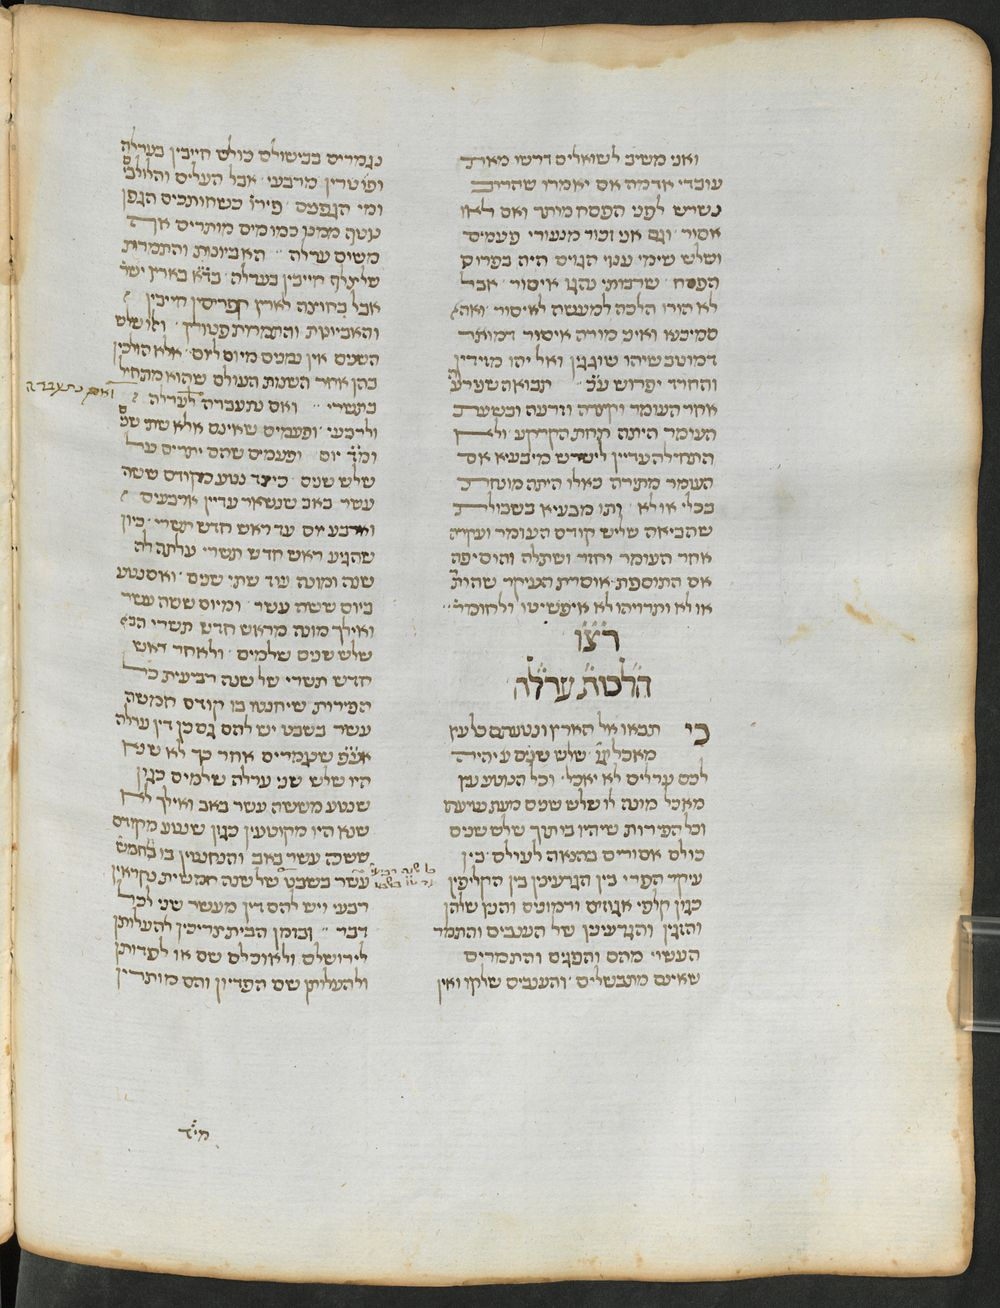 ואני משיב לשואלים דרשו מאת
עובדי אדמה אם יאמרו שהרוב
נשרש לפני הפסח מותר ואם לאו
אסור וגם אני זכור מנעורי פעמים
ושלש שימי ענוי הגוים היה בפרוס
הפסח שרבותי נהגו איסור אבל
לא הורו הלכה למעשה לאיסור
סמיכנא ואיני מורה איסור דמותר
דמוטב שיהו שוגגין ואל יהו מזידין
והחדד יפרוש ע״כ תבואה שעקרה
אחר העומר וזרעה ובשעת
העומר היתה תחת הקרקע ולא
התחילה עדיין לישרש מיבעיא אם
העומר מתירה כאלו היתה מונחת
בכלי או לא ותו מבעיא בשבולת
שהביאה שליש קודם העומר ועקרה
אחר העומר וחזר ושתלה והוסיפה
אם התוספת אוסרת העיקר שהותר
או לא ותרויהו לא איפשיטו ולחומר״
רצ״ו
הלכות ערלה
כי תבואו אל הארץ ונטעתם כל עץ
מאכל וג׳ שלש שנים יהיה
לכם ערלים לא יאכל וכל הנוטע עץ
מאכל מונה לו שלש שנים מעת נטיעתו
וכל הפירות שיהיו בו תוך שלש שנים
כולם אסורים בהנאה לעולם בין
עיקר הפרי בין הגרעינין בין הקליפין
כגון קלפי אגוזים ורמונים והנץ שלהן
והזגין והגרעינין של הענבים והתמד
העשוי מהם והפגים והתמרים
שאינם מתבשלים והענבים שלקו ואין
נגמרים בבישולם כולם חייבין בערלה
ופטורין מרבעי אבל העלים והלולבים
ומי הגפנים פירו׳ כשחותכים הגפן
נוטף ממנו כמו מים מותרים אף
משום ערלה האביונות והתמרות
של צלף חייבין בערלה בד״א בארץ ישר׳
אבל בחוצה לארץ הקפריסין חייבין
והאביונות והתמרות פטורין ושלש
השנים אין נמנים מיום ליום אלא הולכין
בהן אחר השנות העולם שהוא מתחיל
בתשרי ואם נתעברה לערלה
ואם נתעברה
ולרבעי ופעמים שאינם אלא שתי שנים
ומ״ד יום ופעמים שהם יתרים על
שלש שנים כיצד נטע מקודם ששה
עשר באב שנשאר עדיין ארבעים
וארבע יום עד ראש חדש תשרי כיון
שהגיע ראש חדש תשרי עלתה לה
שנה ומונה עוד שתי שנים ואם נטע
ביום ששה עשר ומיום ששה עשר
ואילך מונה מראש חדש תשרי הבא
שלש שנים שלמים ולאחר ראש
חדש תשרי של שנה רביעית כל
הפירות שיחנטו בו קודם חמשה
עשר בשבט יש להם גם כן דין ערלה
אע״פ שנגמרים אחר כך לא שנא
היו שלש שני ערלה שלמים כגון
שנטע מששה עשר באב ואילך לא
שנא היו מקוטעין כגון שנטע מקודם
ששה עשר באב והנחנטין בו בחמשה
עשר בשבט של שנה חמשית נקראין
רבעי ויש להם דין מעשר שני לכל
דבר ובזמן הבית צריכין להעלותן
לירושלם ולאוכלם שם או לפדותן
ולהעלותן שם הפדיון והם מותרין